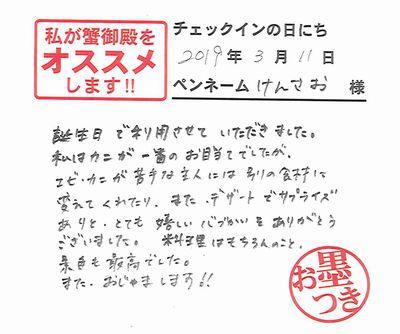 私が蟹御殿を
オススメ
します!!
チェックインの日にち
2019年 3月 11日
ペンネーム けんさお 様
誕生日で利用させていただきました。
私はカニが一番のお目当てでしたが、
エビ・カニが苦手な主人には別の食材に
変えてくれたり、また、デザートでサプライズ
ありと、とても嬉しい心づかいをありがとう
ございました。 料理はもちろんのこと、
景色も最高でした。
また、おじゃまします!!
お墨つき